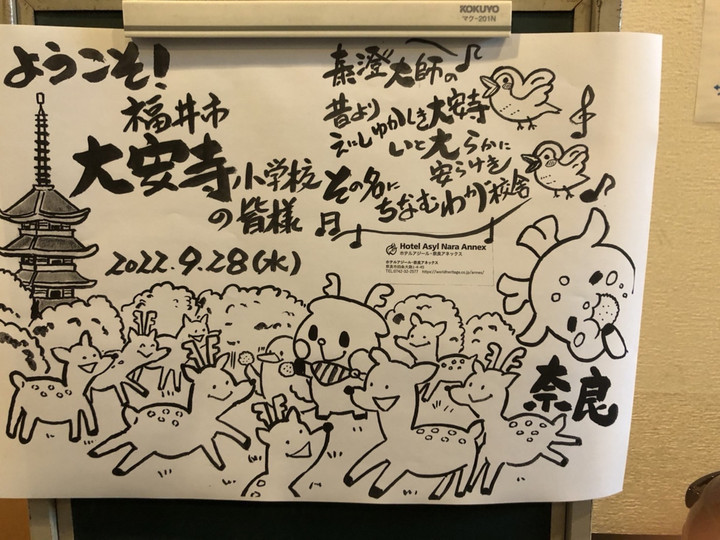 KOKUYO
マク-201N
ようこそ!
福井市
大安寺小学校
の皆様
2022.9.28(水)
泰澄大師の
昔より
えにしゆかしき大安寺
いと大らかに
安らけき
その名に
ちなむわが校舎
Hotel Asyl Nara Annex
ホテルアジール・奈良アネックス
ホテルアジール・奈良アネックス
奈良